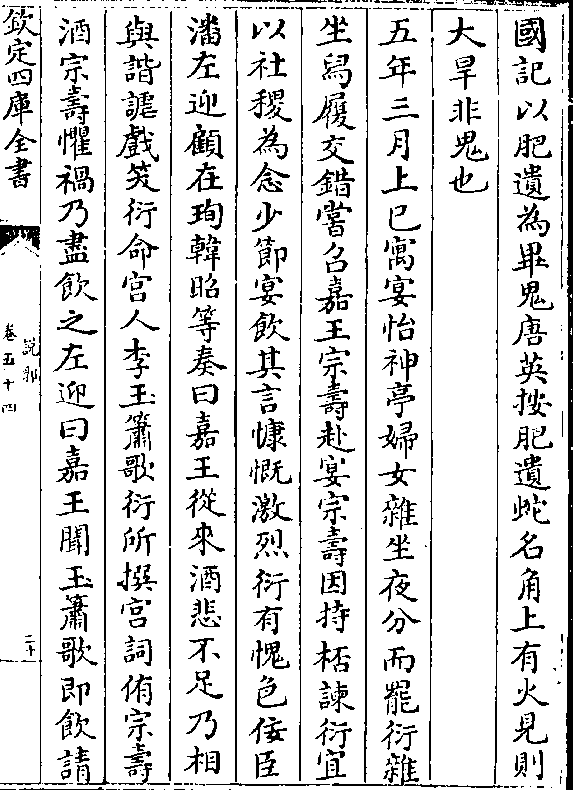 國記以肥遺為𤰞鬼唐英按肥遺蛇名角上有火見則
大旱非鬼也
五年三月上巳寓宴怡神亭婦女雜坐夜分而罷衍雜
坐舄履交錯嘗召嘉王宗壽赴宴宗壽因持桮諫衍宜
以社稷為念少節宴飲其言慷慨激烈衍有愧色佞臣
潘左迎顧在珣韓昭等奏曰嘉王從來酒悲不足乃相
與諧謔戲笑衍命宮人李玉簫歌衍所撰宮詞侑宗壽
酒宗壽懼禍乃盡飲之左迎曰嘉王聞玉簫歌即飲請
欽定四庫全書
說郛
卷五十四
二十